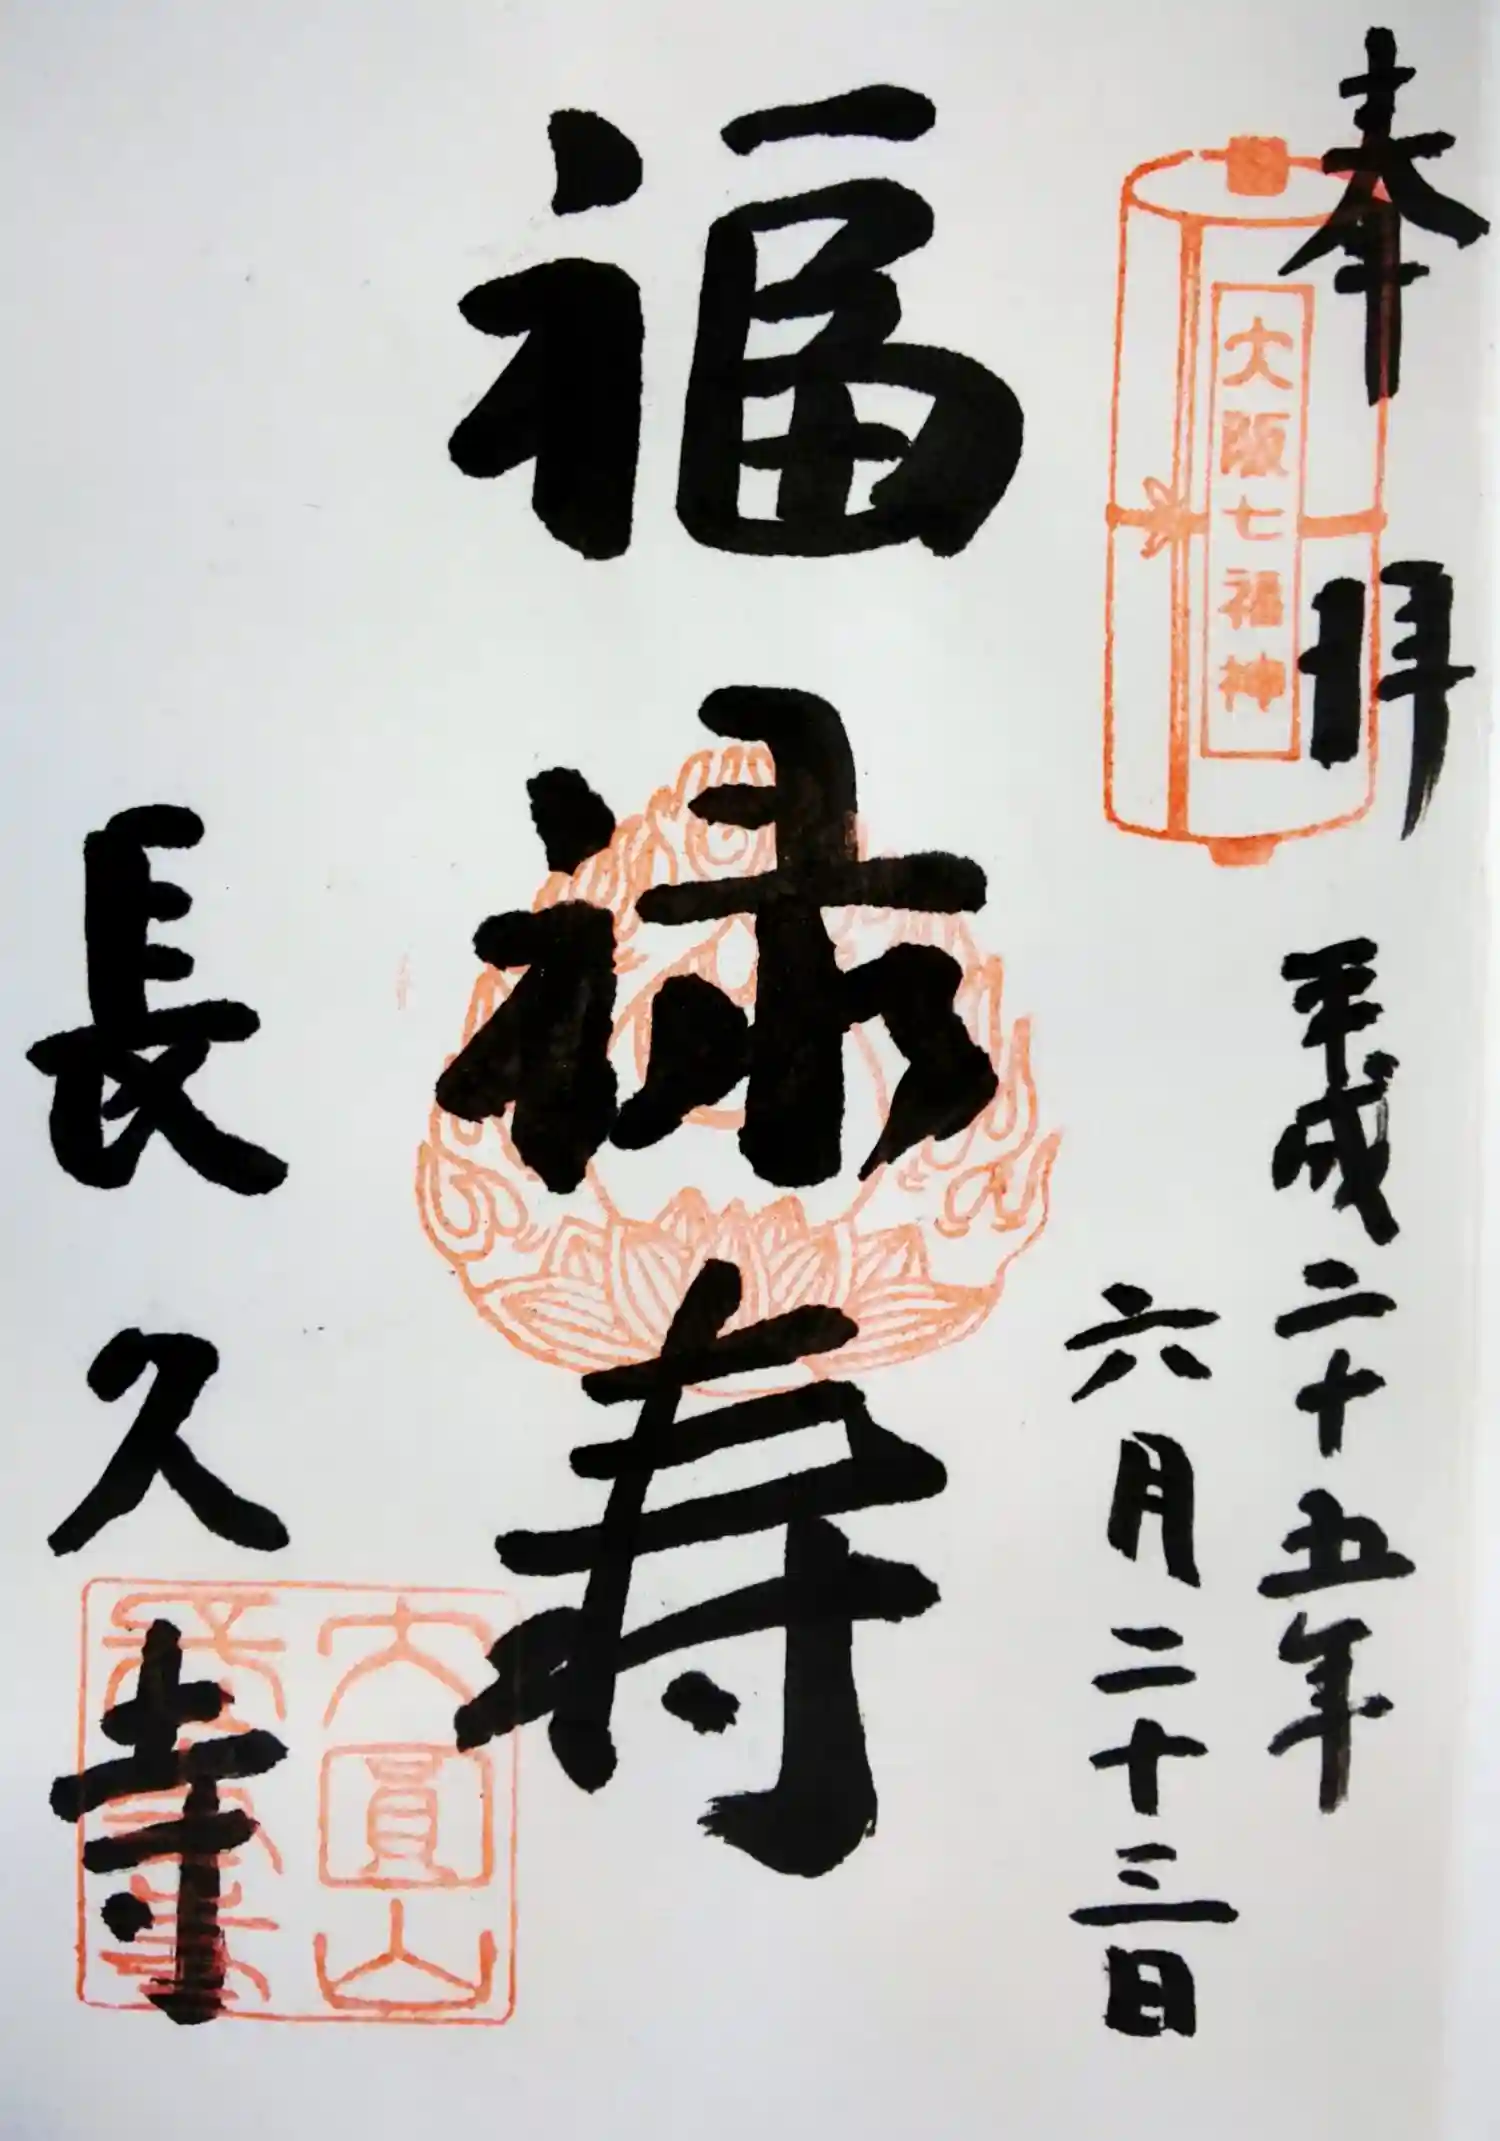 奉拝
大阪七福神
平成二十五年
六月二十三日
福禄寿
長久寺
大圓山
長久寺